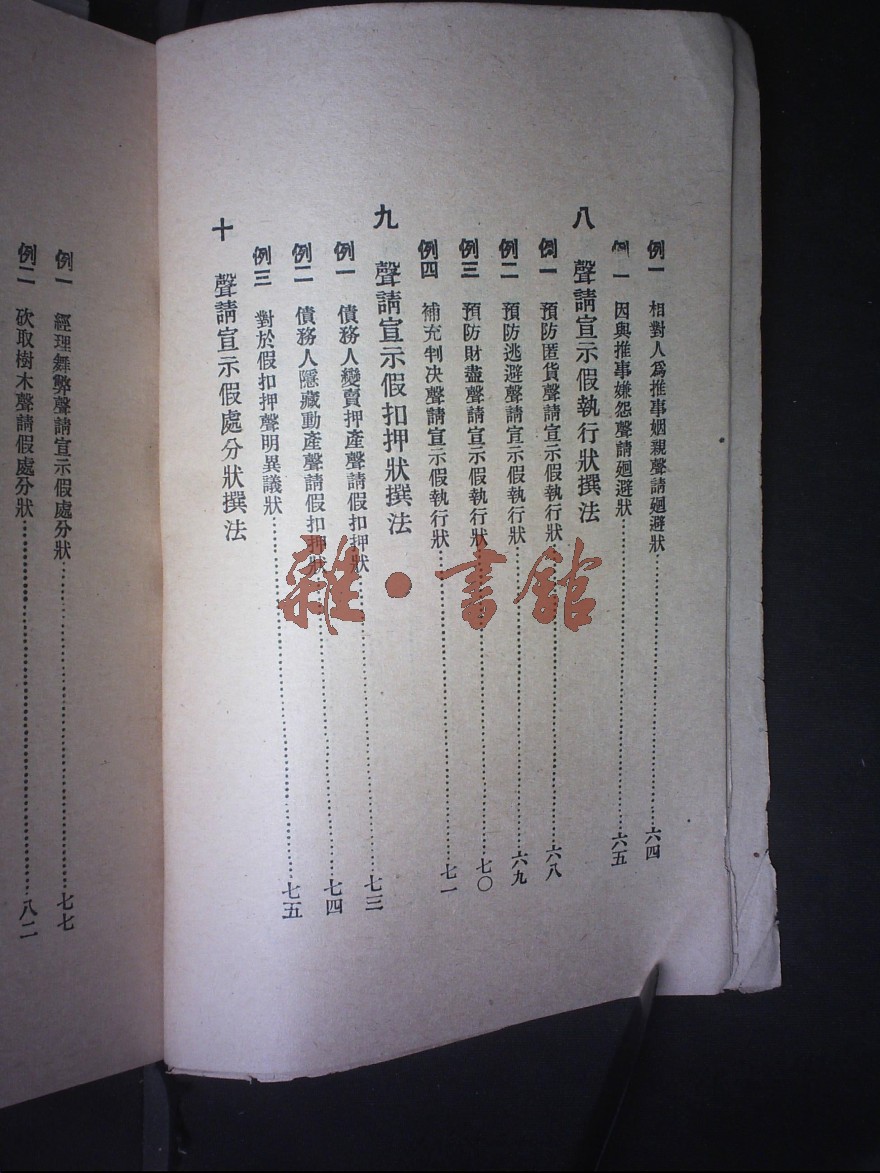 例一　相對人爲推事姻親聲請廻避狀……六四
例一　因與推事嫌怨聲請廻避狀……六五
八　聲請宣示假執行狀撰法
例一　預防匿貨聲請宣示假執行狀……六八
例二　預防逃避聲請宣示假執行狀……六九
例三　預防財盡聲請宣示假執行狀……七〇
例四　補充判决聲請宣示假執行狀……七一
九　聲請宣示假扣押狀撰法
例一　債務人變賣押產聲請假扣押狀……七三
例二　債務人隱藏動產聲請假扣押狀……七四
例三　對於假扣押聲明異議狀……七五
十　聲請宣示假處分狀撰法
例一　經理舞弊聲請宣示假處分狀……七七
例二　砍取樹木聲請假處分狀……八二
雜·書館